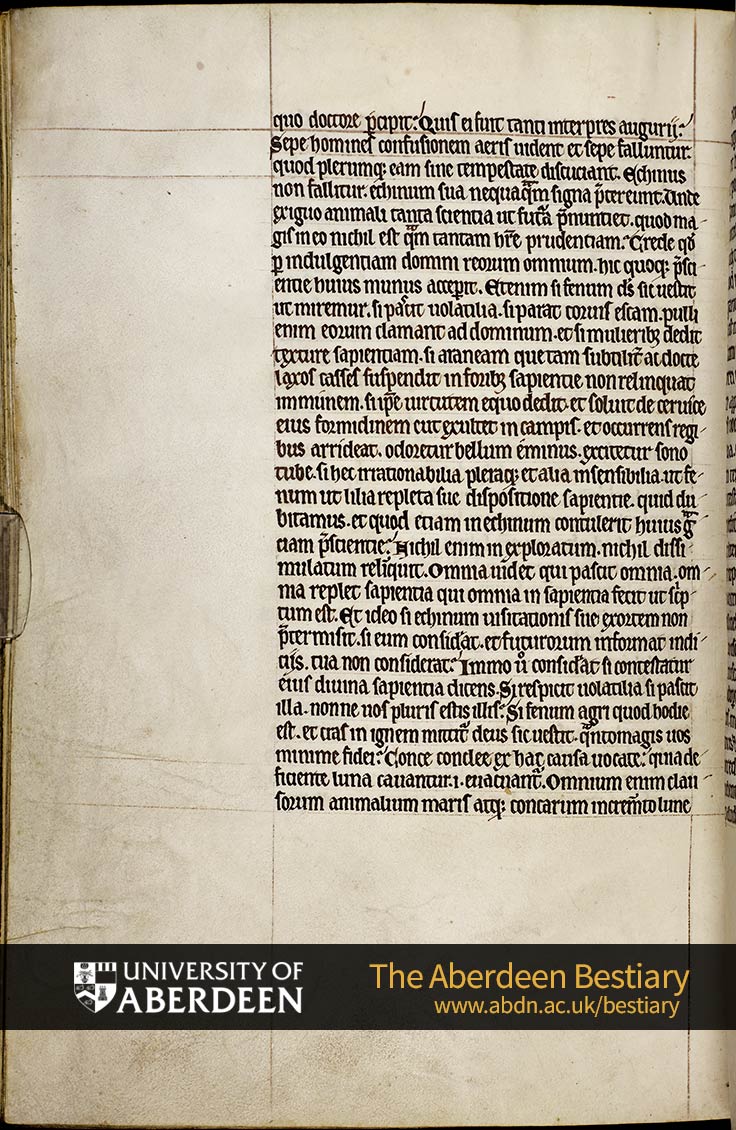 quo doctore p̄cipit? Quis ei fuit tanti interpres augurii?
Sepe homines confusionem aeris uident et sepe falluntur.
quod plerumq; eam sine tempestate discuciant. Echinus
non fallitur. echinum sua nequaq̄m signa p̄tereunt. Unde
exiguo animali tanta scientia ut futura p̄nuntiet. quod ma-
gis in eo nichil est q̄m tantam hr̄e prudenciam? Crede qd̄
p indulgentiam domini reorum omnium. hic quoq; p̄sci-
entie huius munus acceperit. Etenim si fenum ds̄ sic uestit
ut miremur. si pascit uolatilia. si parat coruis escam. pulli
enim eorum clamant ad dominum. et si mulierib; dedit
texture sapientiam. si araneam que tam subtilit̄ ac docte
laxos casses suspendit in forib; sapientie non relinquat
immunem. si ip̄e uirtutem equo dedit. et soluit de ceruice
eius formidinem cut exultet in campis. et occurrens regi-
bus arrideat. odoretur bellum eminus. excitetur sono
tube. si hec irrationabilia pleraq; et alia insensibilia. ut fe-
num ut lilia repleta sue dispositione sapientie. quid du-
bitamus. et quod etiam in echinum contulerit huius gͣ-
ciam p̄scientie? Nichil enim in exploratum. nichil dissi-
mulatum reliquit. Omnia uidet qui pascit omnia. om-
nia replet sapientia qui omnia in sapientia fecit ut sc̄p
tum est. Et ideo si echinum uisitationis sue exortem non
p̄termisit. si eum considerat. et futurorum informat indi-
tiis. tua non considerat? Immo ů considerat si contestatur
eius diuina sapientia dicens. Si respicit uolatilia si pascit
illa. nonne uos pluris estis illis? Si fenum agri quod hodie
est. et cras in ignem mittit̄ deus sic uestit. qͣntomagis uos
minime fidei? Conce conclee ex hac causa uocate? quia de-
ficiente luna cauantur. i. euacuant̄. Omnium enim clau-
sorum animalium maris atq; concarum increm̄to lune
UNIVERSITY OF
ABERDEEN
The Aberdeen Bestiary
www.abdn.ac.uk/bestiary